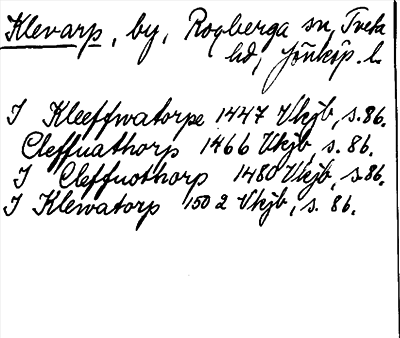 Klevarp, by, Rogberga sn, Tveta
hd, Jönköp. l.
I Kleeffwatorpe 1447 Vkjb, s. 86.
Cleffuathorp 1466 Vkjb, s. 86.
I Cleffuothorp 1480 Vkjb, s. 86.
I Klewatorp 1502 Vkjb, s. 86.